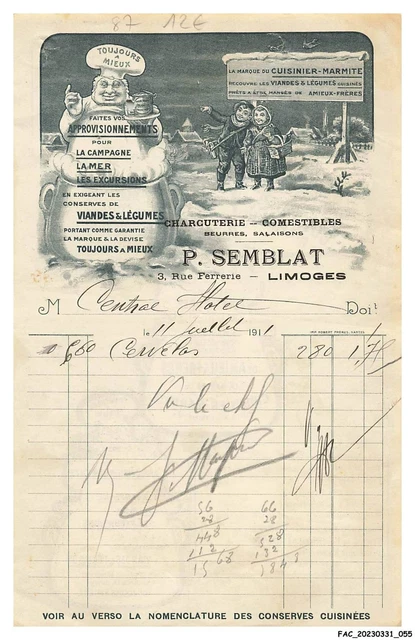 87 12€
TOUJOURS
A
MIEUX
FAITES VOS
APPROVISIONNEMENTS
POUR
LA CAMPAGNE
LA MER
LES EXCURSIONS
EN EXIGEANT LES
CONSERVES DE
VIANDES & LÉGUMES
PORTANT COMME GARANTIE
LA MARQUE & LA DEVISE
TOUJOURS A MIEUX
LA MARQUE DU CUISINIER-MARMITE
RECOUVRE LES VIANDES & LÉGUMES CUISINÉS
AMIEUX-FRÈRES
CHARCUTERIE — COMESTIBLES
BEURRES, SALAISONS
P. SEMBLAT
3, Rue Ferrerie — LIMOGES
M Central Hotel Doit
le 11 Juillet 1911
Cervelas 280
56 66
28 28
448 528
112 132
1568 1848
VOIR AU VERSO LA NOMENCLATURE DES CONSERVES CUISINÉES
FAC_20230331_055